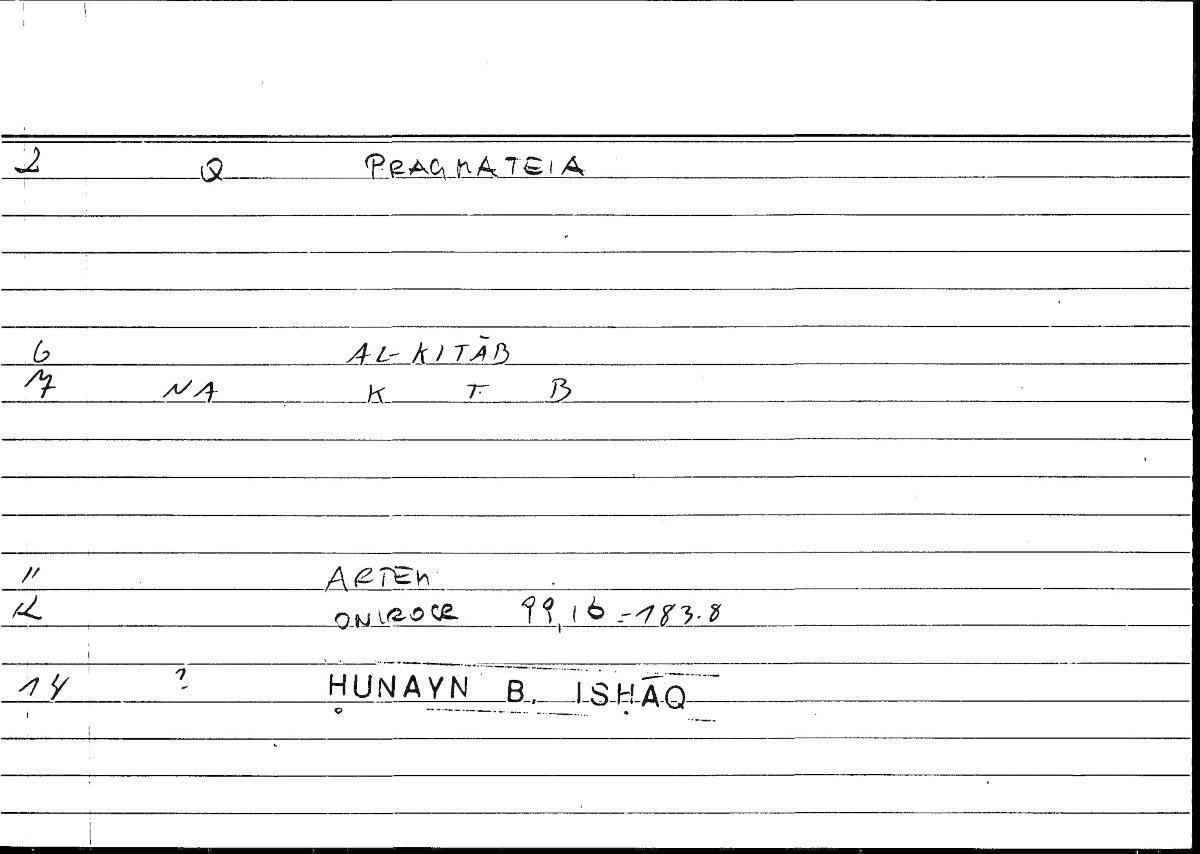 2 Q PRAGMATEIA
6 AL-KITĀB
7 NA K T. B
11 ARTEM
12 ONIROCR 99,16-183.8
14 ? ḤUNAYN B. ISḤĀQ